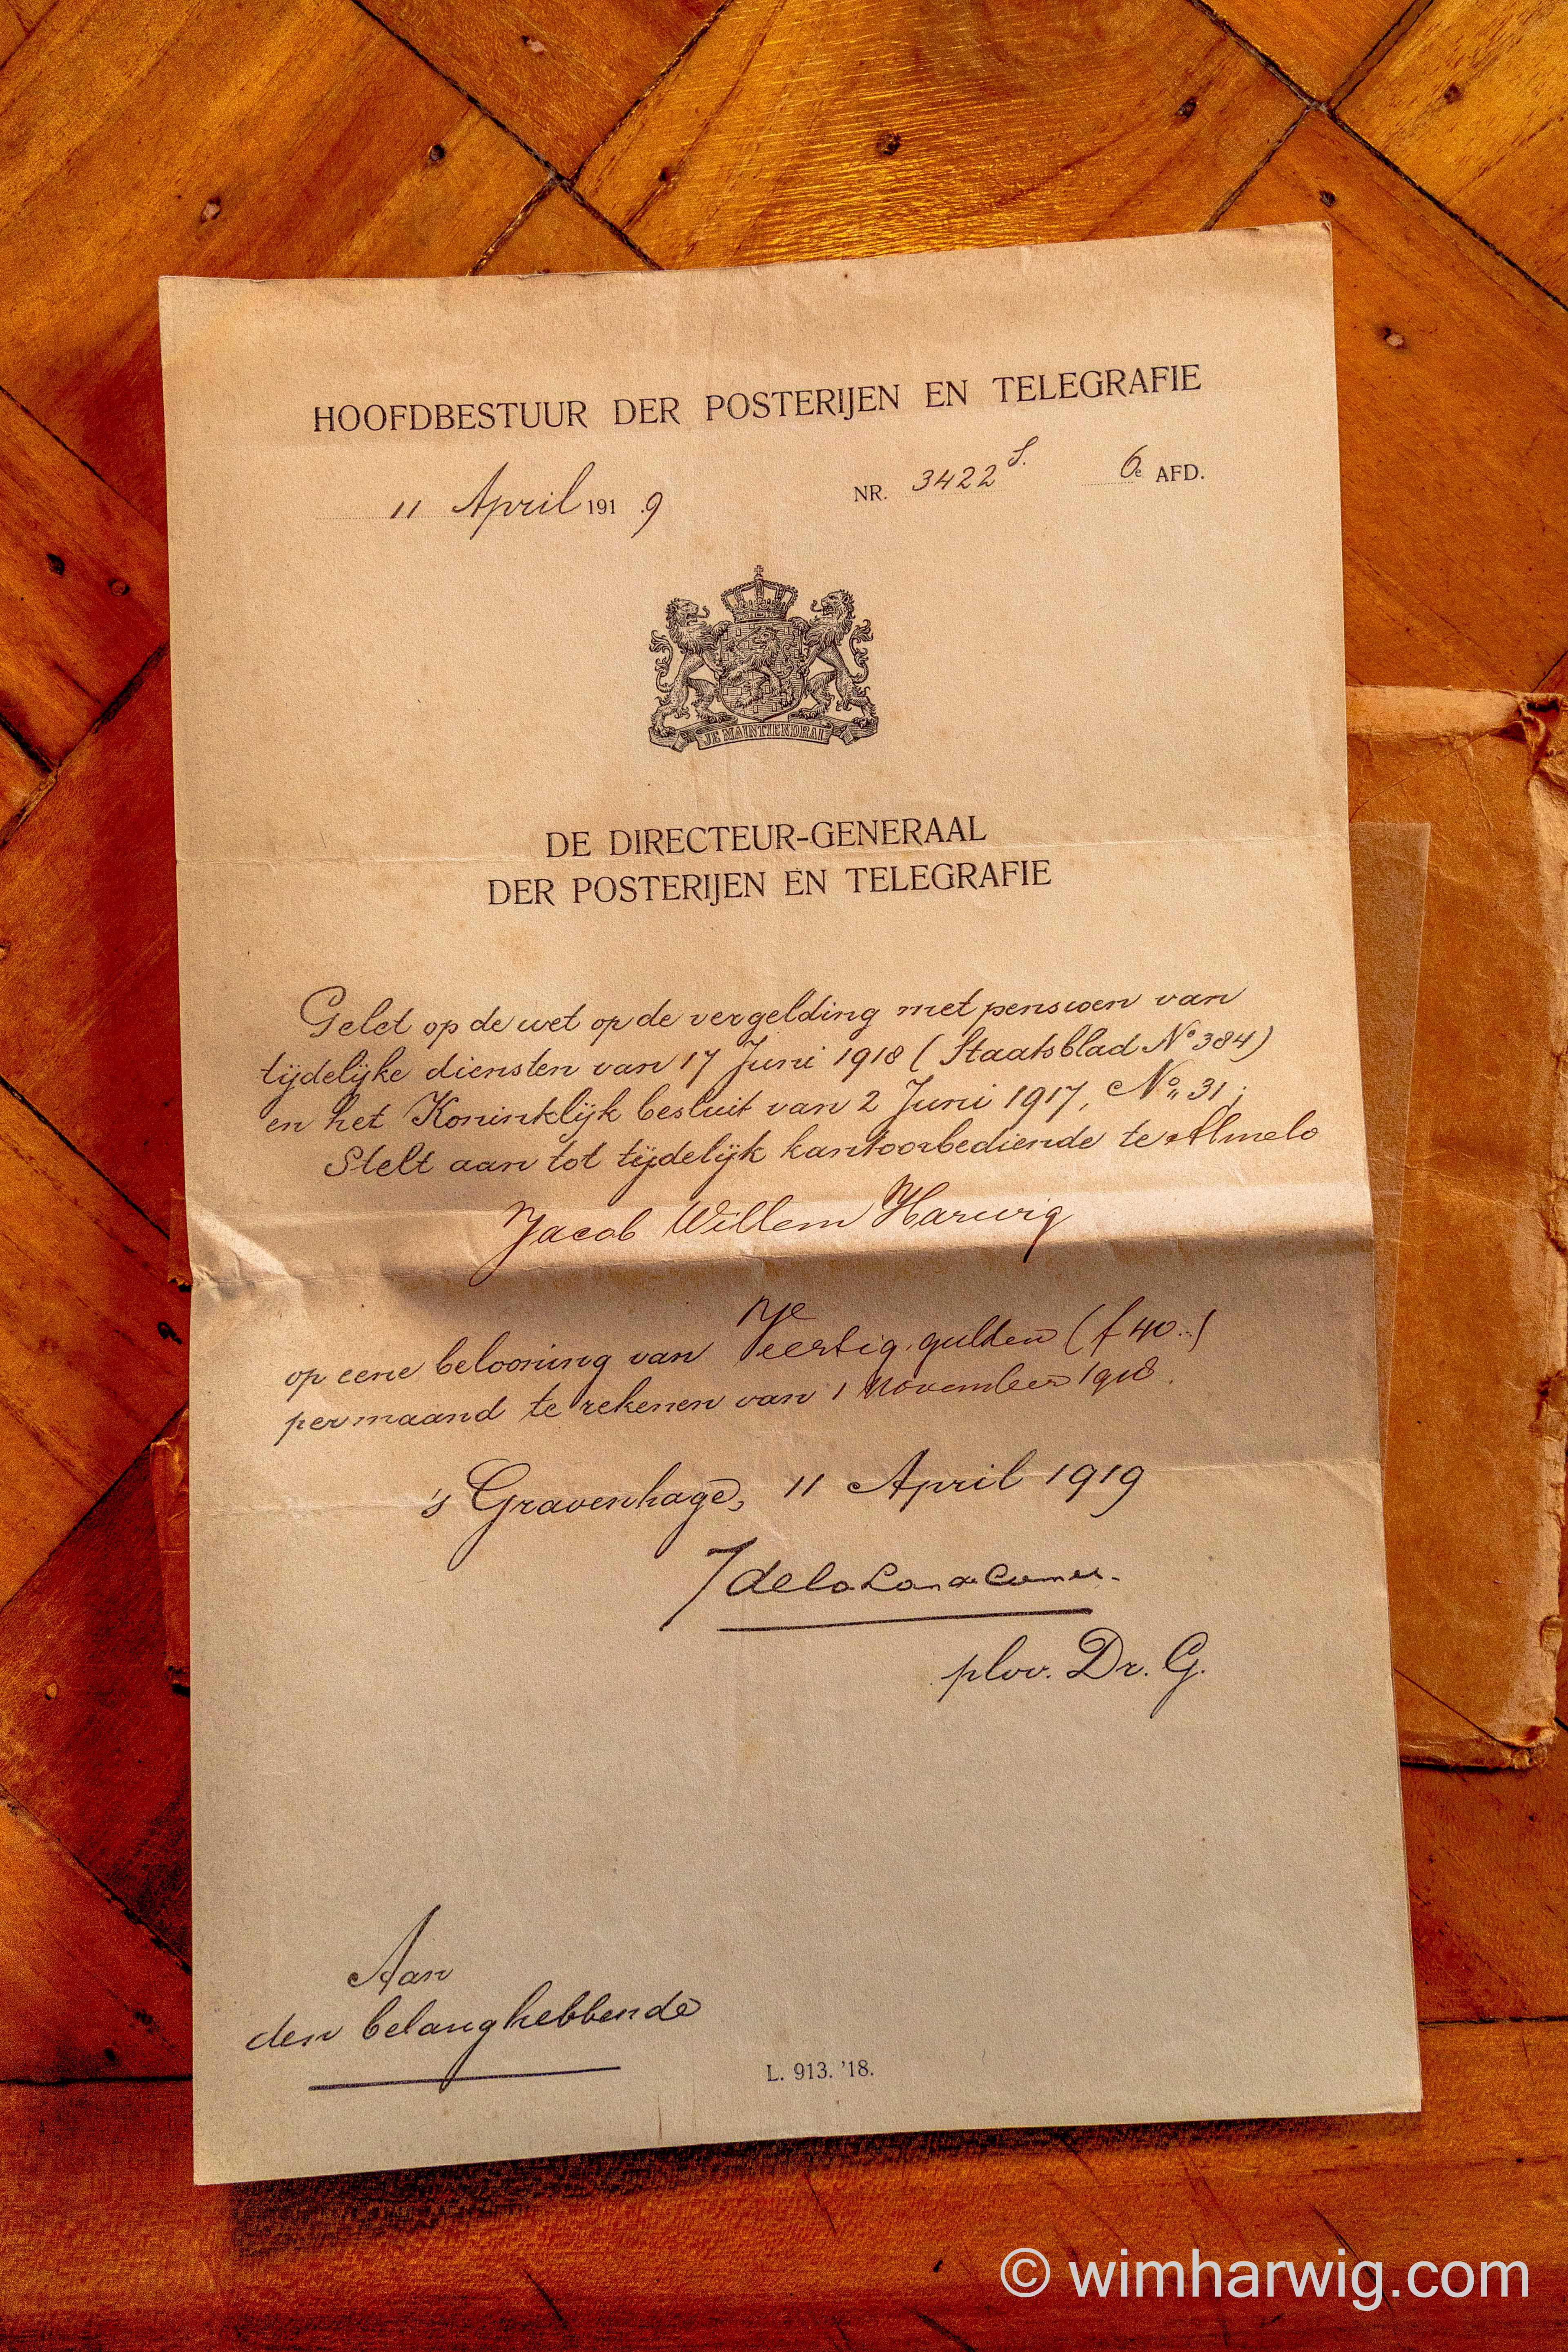 HOOFDBESTUUR DER POSTERIJEN EN TELEGRAFIE
11 April 1919 NR. 3422 S. 6e AFD.
JE MAINTIENDRAI
DE DIRECTEUR-GENERAAL
DER POSTERIJEN EN TELEGRAFIE
Gelet op de wet op de vergelding met pensioen van
tijdelijke diensten van 17 Juni 1918 (Staatsblad No 384)
en het Koninklijk besluit van 2 Juni 1917, No. 31;
Stelt aan tot tijdelijk kantoorbediende te Almelo
Jacob Willem Harwig
op eene belooning van Veertig gulden (f 40..)
per maand te rekenen van 1 November 1918.
's Gravenhage, 11 April 1919
plvv. Dr. G.
Aan
den belanghebbende
L. 913. '18.
© wimharwig.com